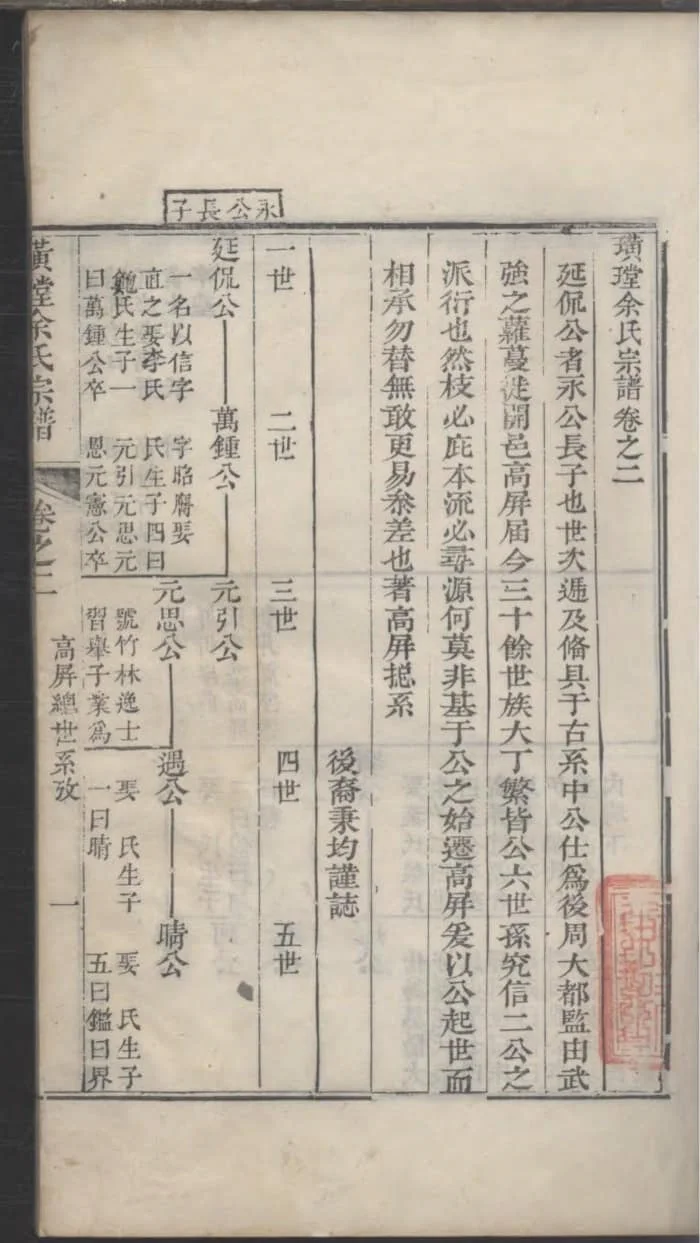 璜瑝余氏宗譜卷之二
延侃公者永公長子也世次遞及脩具于右系中公仕爲後周大都監由武
強之蘿蔓徙開邑高屏届今三十餘世族大丁繁皆公六世孫究信二公之
派衍也然枝必庇本流必尋源何莫非基于公之始遷高屏爰以公起世而
相承勿替無敢更易叅差也著高屏捴系
後裔秉均謹誌
永公長子
一世
二世
三世
四世
五世
延侃公
萬鍾公
元引公
一名以信字
直之娶李氏
鮑氏生子一
曰萬鍾公卒
字昭腐娶
氏生子四曰
元引元思元
恩元憲公卒
元思公
遇公
晴公
號竹林逸士
習舉子業爲
娶 氏生子
一曰晴
娶 氏生子
五曰鑑曰界
璜瑝余氏宗譜
卷之二
高屏總世系攷
一